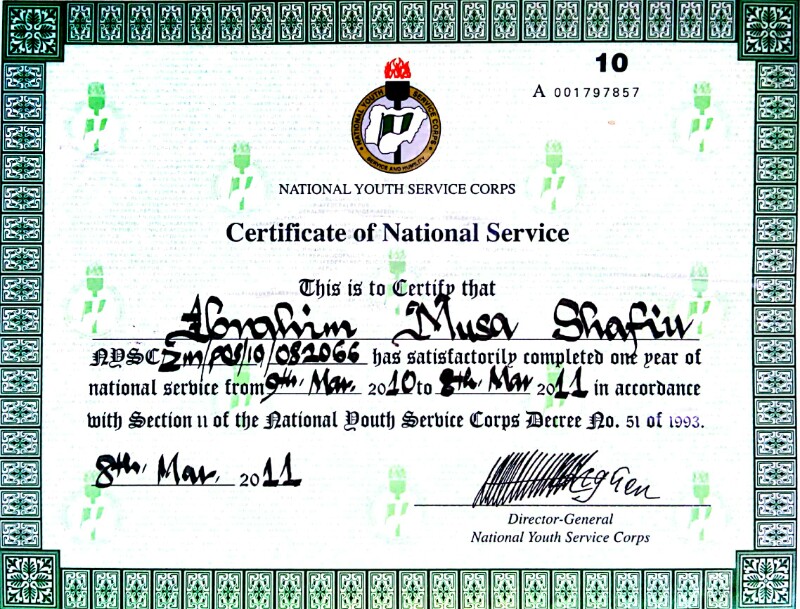 10
A 001797857
NATIONAL YOUTH SERVICE CORPS
SERVICE AND HUMILITY
NATIONAL YOUTH SERVICE CORPS
Certificate of National Service
This is to Certify that
Ibraghim Musa Shafiu
NYSC ZM/POS/10/082066 has satisfactorily completed one year of
national service from 9th. Mar. 2010 to 8th. Mar 2011 in accordance
with Section 11 of the National Youth Service Corps Decree No. 51 of 1993.
8th. Mar. 2011
Director-General
National Youth Service Corps